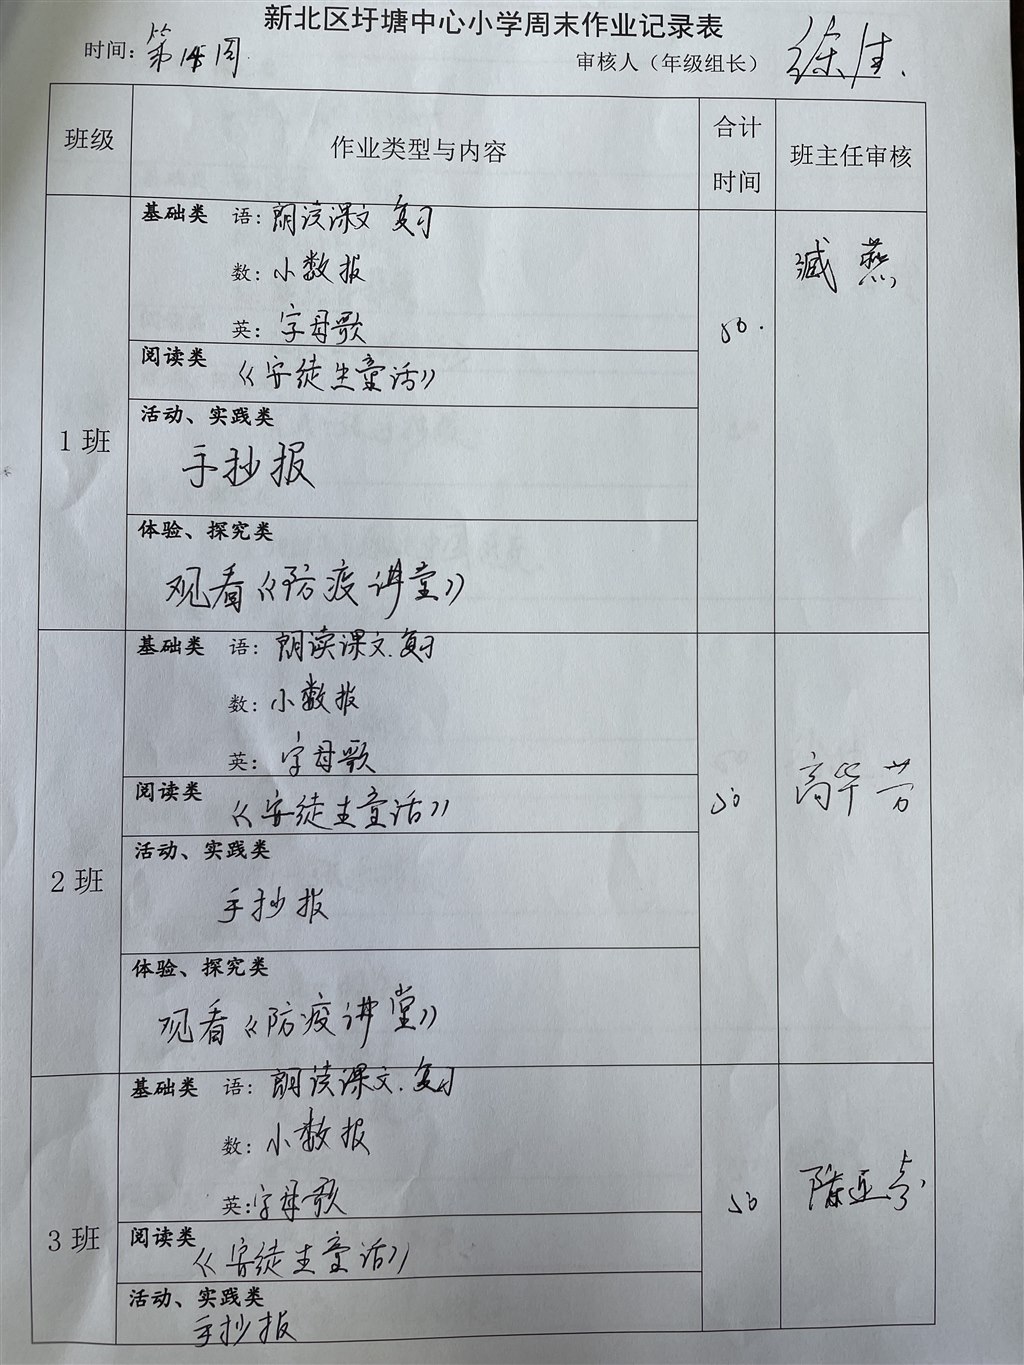 新北区圩塘中心小学周末作业记录表
时间：第15周
审核人（年级组长）
班级
作业类型与内容
合计时间
班主任审核
1班
基础类 语：朗读课文 复习
数：小数报
英：字母歌
阅读类 《安徒生童话》
活动、实践类
手抄报
体验、探究类
观看《防疫讲堂》
50.
臧燕
2班
基础类 语：朗读课文.复习
数：小数报
英：字母歌
阅读类 《安徒生童话》
活动、实践类
手抄报
体验、探究类
观看《防疫讲堂》
50
高华芳
3班
基础类 语：朗读课文.复习
数：小数报
英：字母歌
阅读类 《安徒生童话》
活动、实践类
手抄报
50
陈亚芬